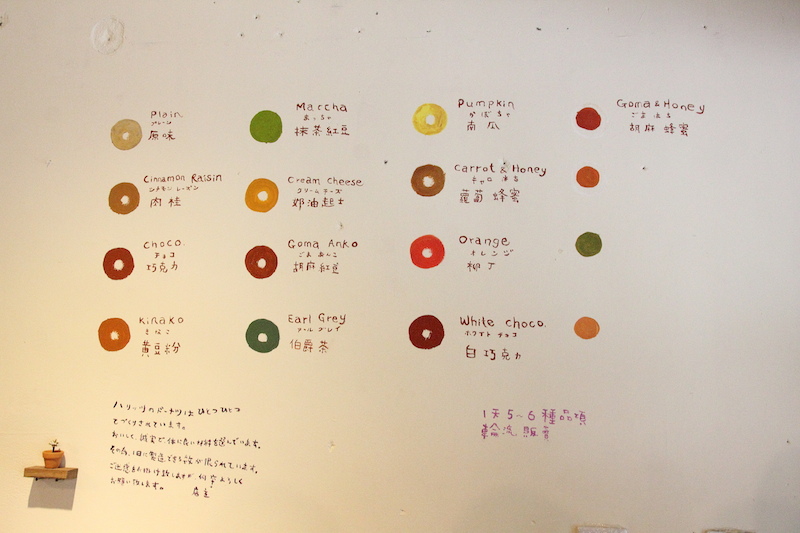 Plain
プレーン
原味
Maccha
まっちゃ
抹茶紅豆
Pumpkin
かぼちゃ
南瓜
Goma & Honey
ごま はち
胡麻 蜂蜜
Cinnamon Raisin
シナモン レーズン
肉桂
Cream Cheese
クリーム チーズ
奶油起士
Carrot & Honey
キャロ はち
蘿蔔 蜂蜜
Choco.
チョコ
巧克力
Goma Anko
ごま あんこ
胡麻紅豆
Orange
オレンジ
柳丁
Kinako
きなこ
黄豆紛
Earl Grey
アールグレイ
伯爵茶
White choco.
ホワイト チョコ
白巧克力
ハリッツのドーナツはひとつひとつ
てづくりされています。
おいしく、誠実で体に良い材料を選んでいます。
その為、1日に製造できる数が限られています。
ご迷惑をお掛け致しますが 何卒よろしく
お願い致します。
店主
1天5~6種品項
輪流 販賣